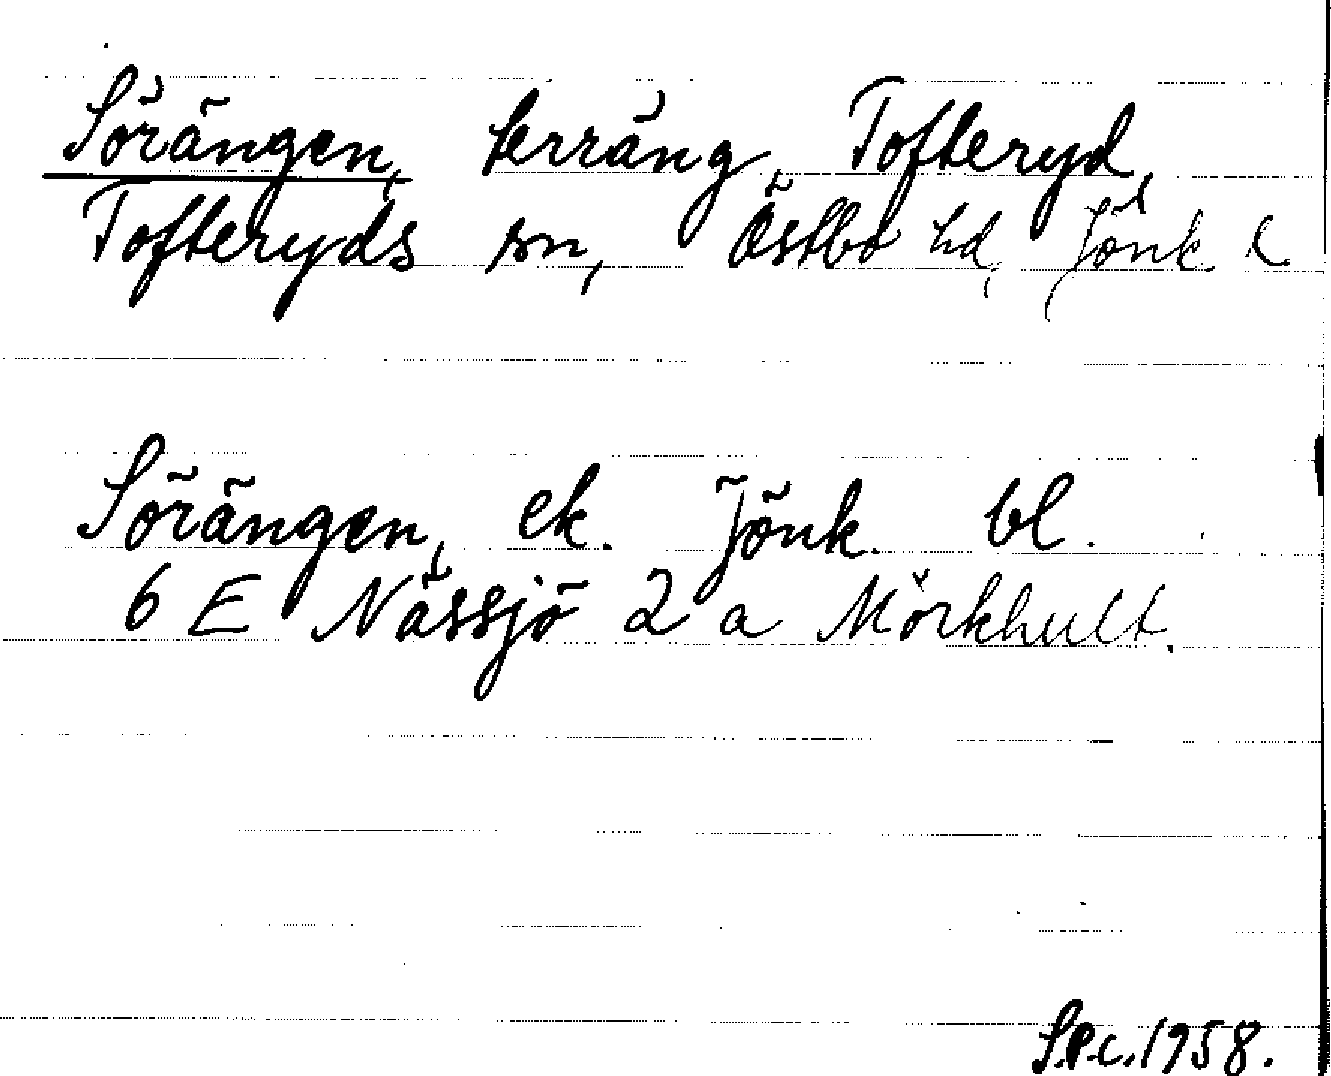 Sörängen, terräng, Tofteryd,
Tofteryds sn, Östbo hd, Jönk l
Sörängen, ek. Jönk. bl.
6 E Nässjö 2 a Mörkhult.
S.P.C. 1958.